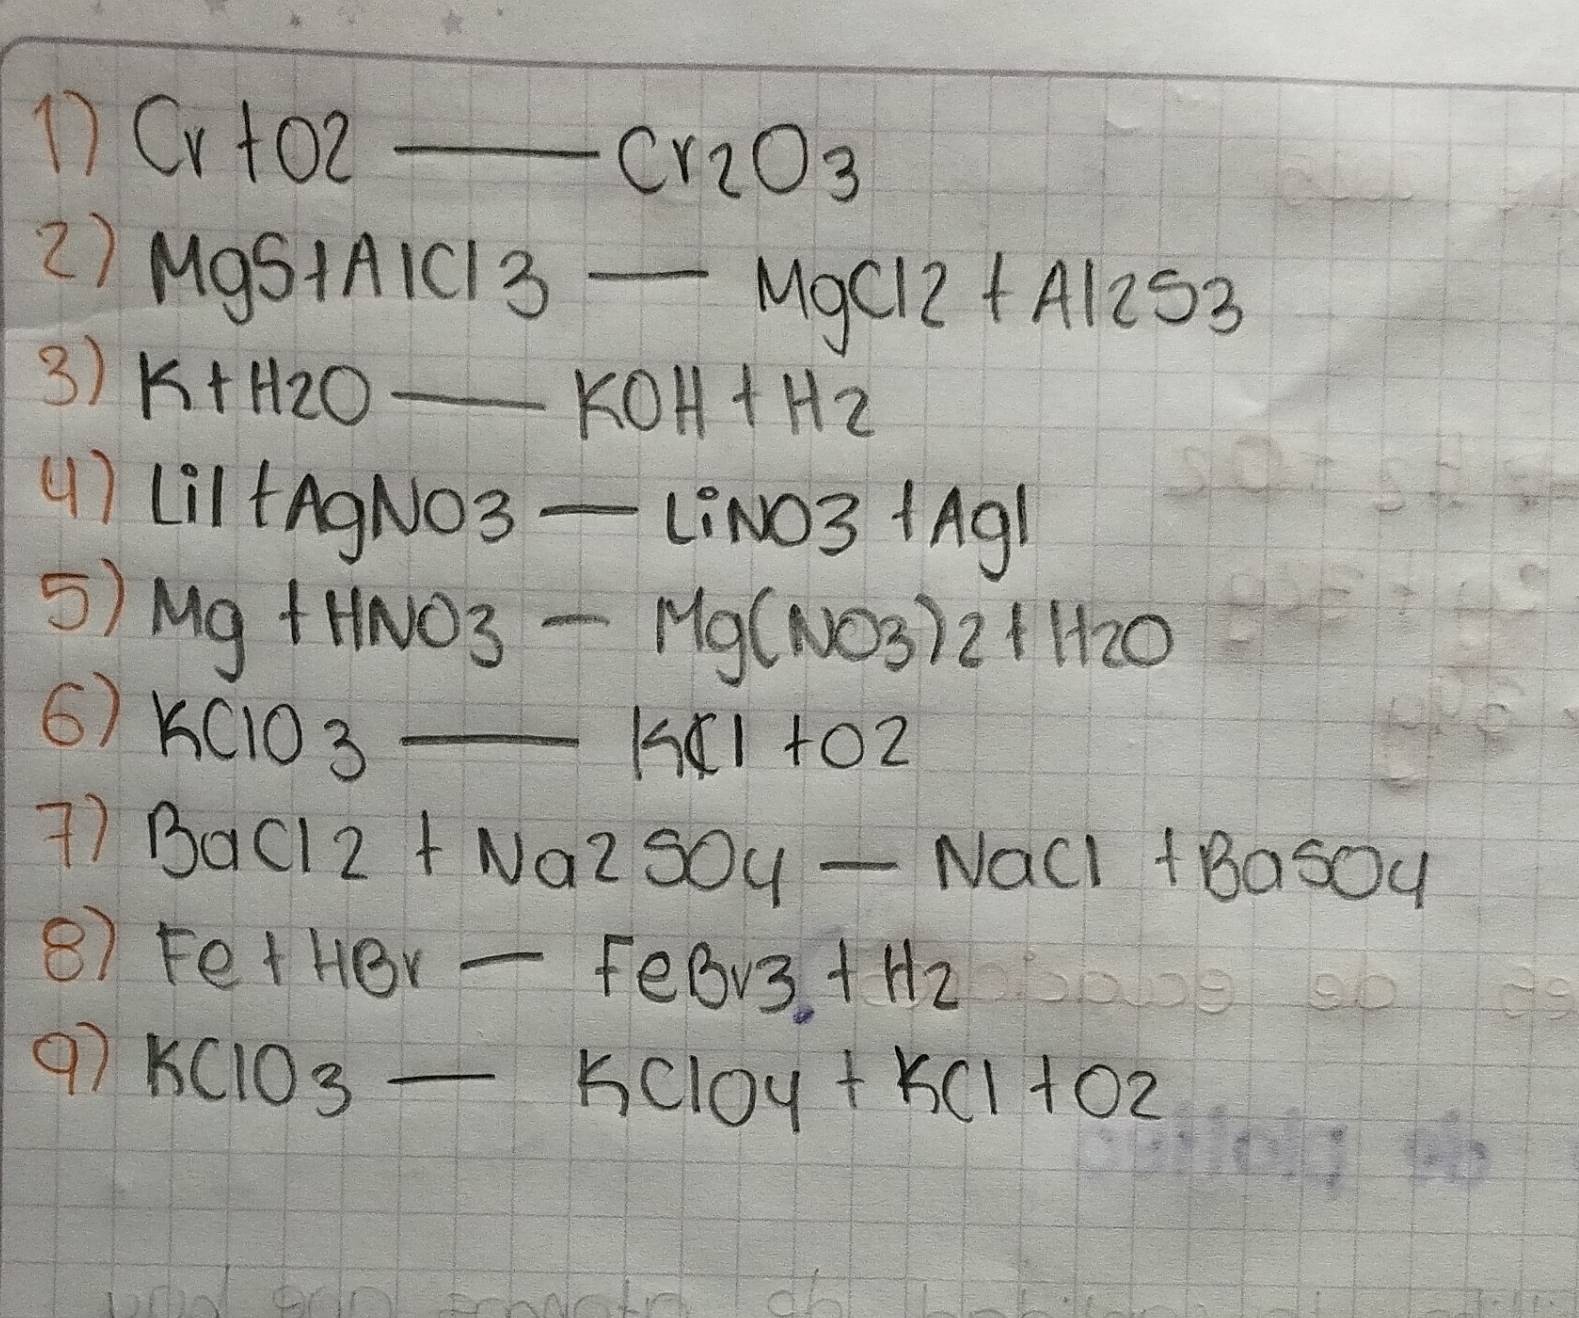 1) Cr+O2 — Cr2O3
2) MgS+AlCl3 — MgCl2 + Al2S3
3) K+H2O — KOH + H2
4) LiI+AgNO3 — LiNO3 +AgI
5) Mg +HNO3 — Mg(NO3)2+H2O
6) KClO3 — KCl +O2
7) BaCl2 + Na2SO4 — NaCl +BaSO4
8) Fe+HBr — FeBr3 +H2
9) KClO3 — KClO4 + KCl +O2